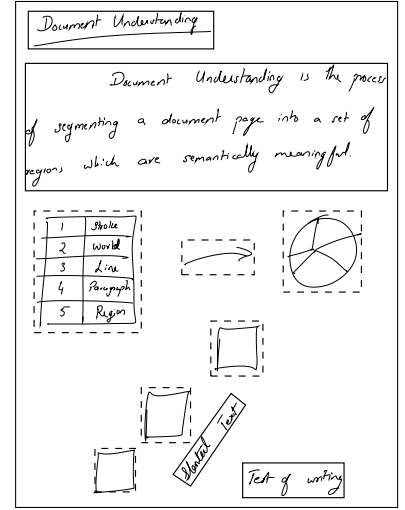 Document Understanding
Document Understanding is the process
of segmenting a document page into a set of
regions which are semantically meaningful.
1 Stroke
2 World
3 Line
4 Paragraph
5 Region
Slanted Text
Test of writing